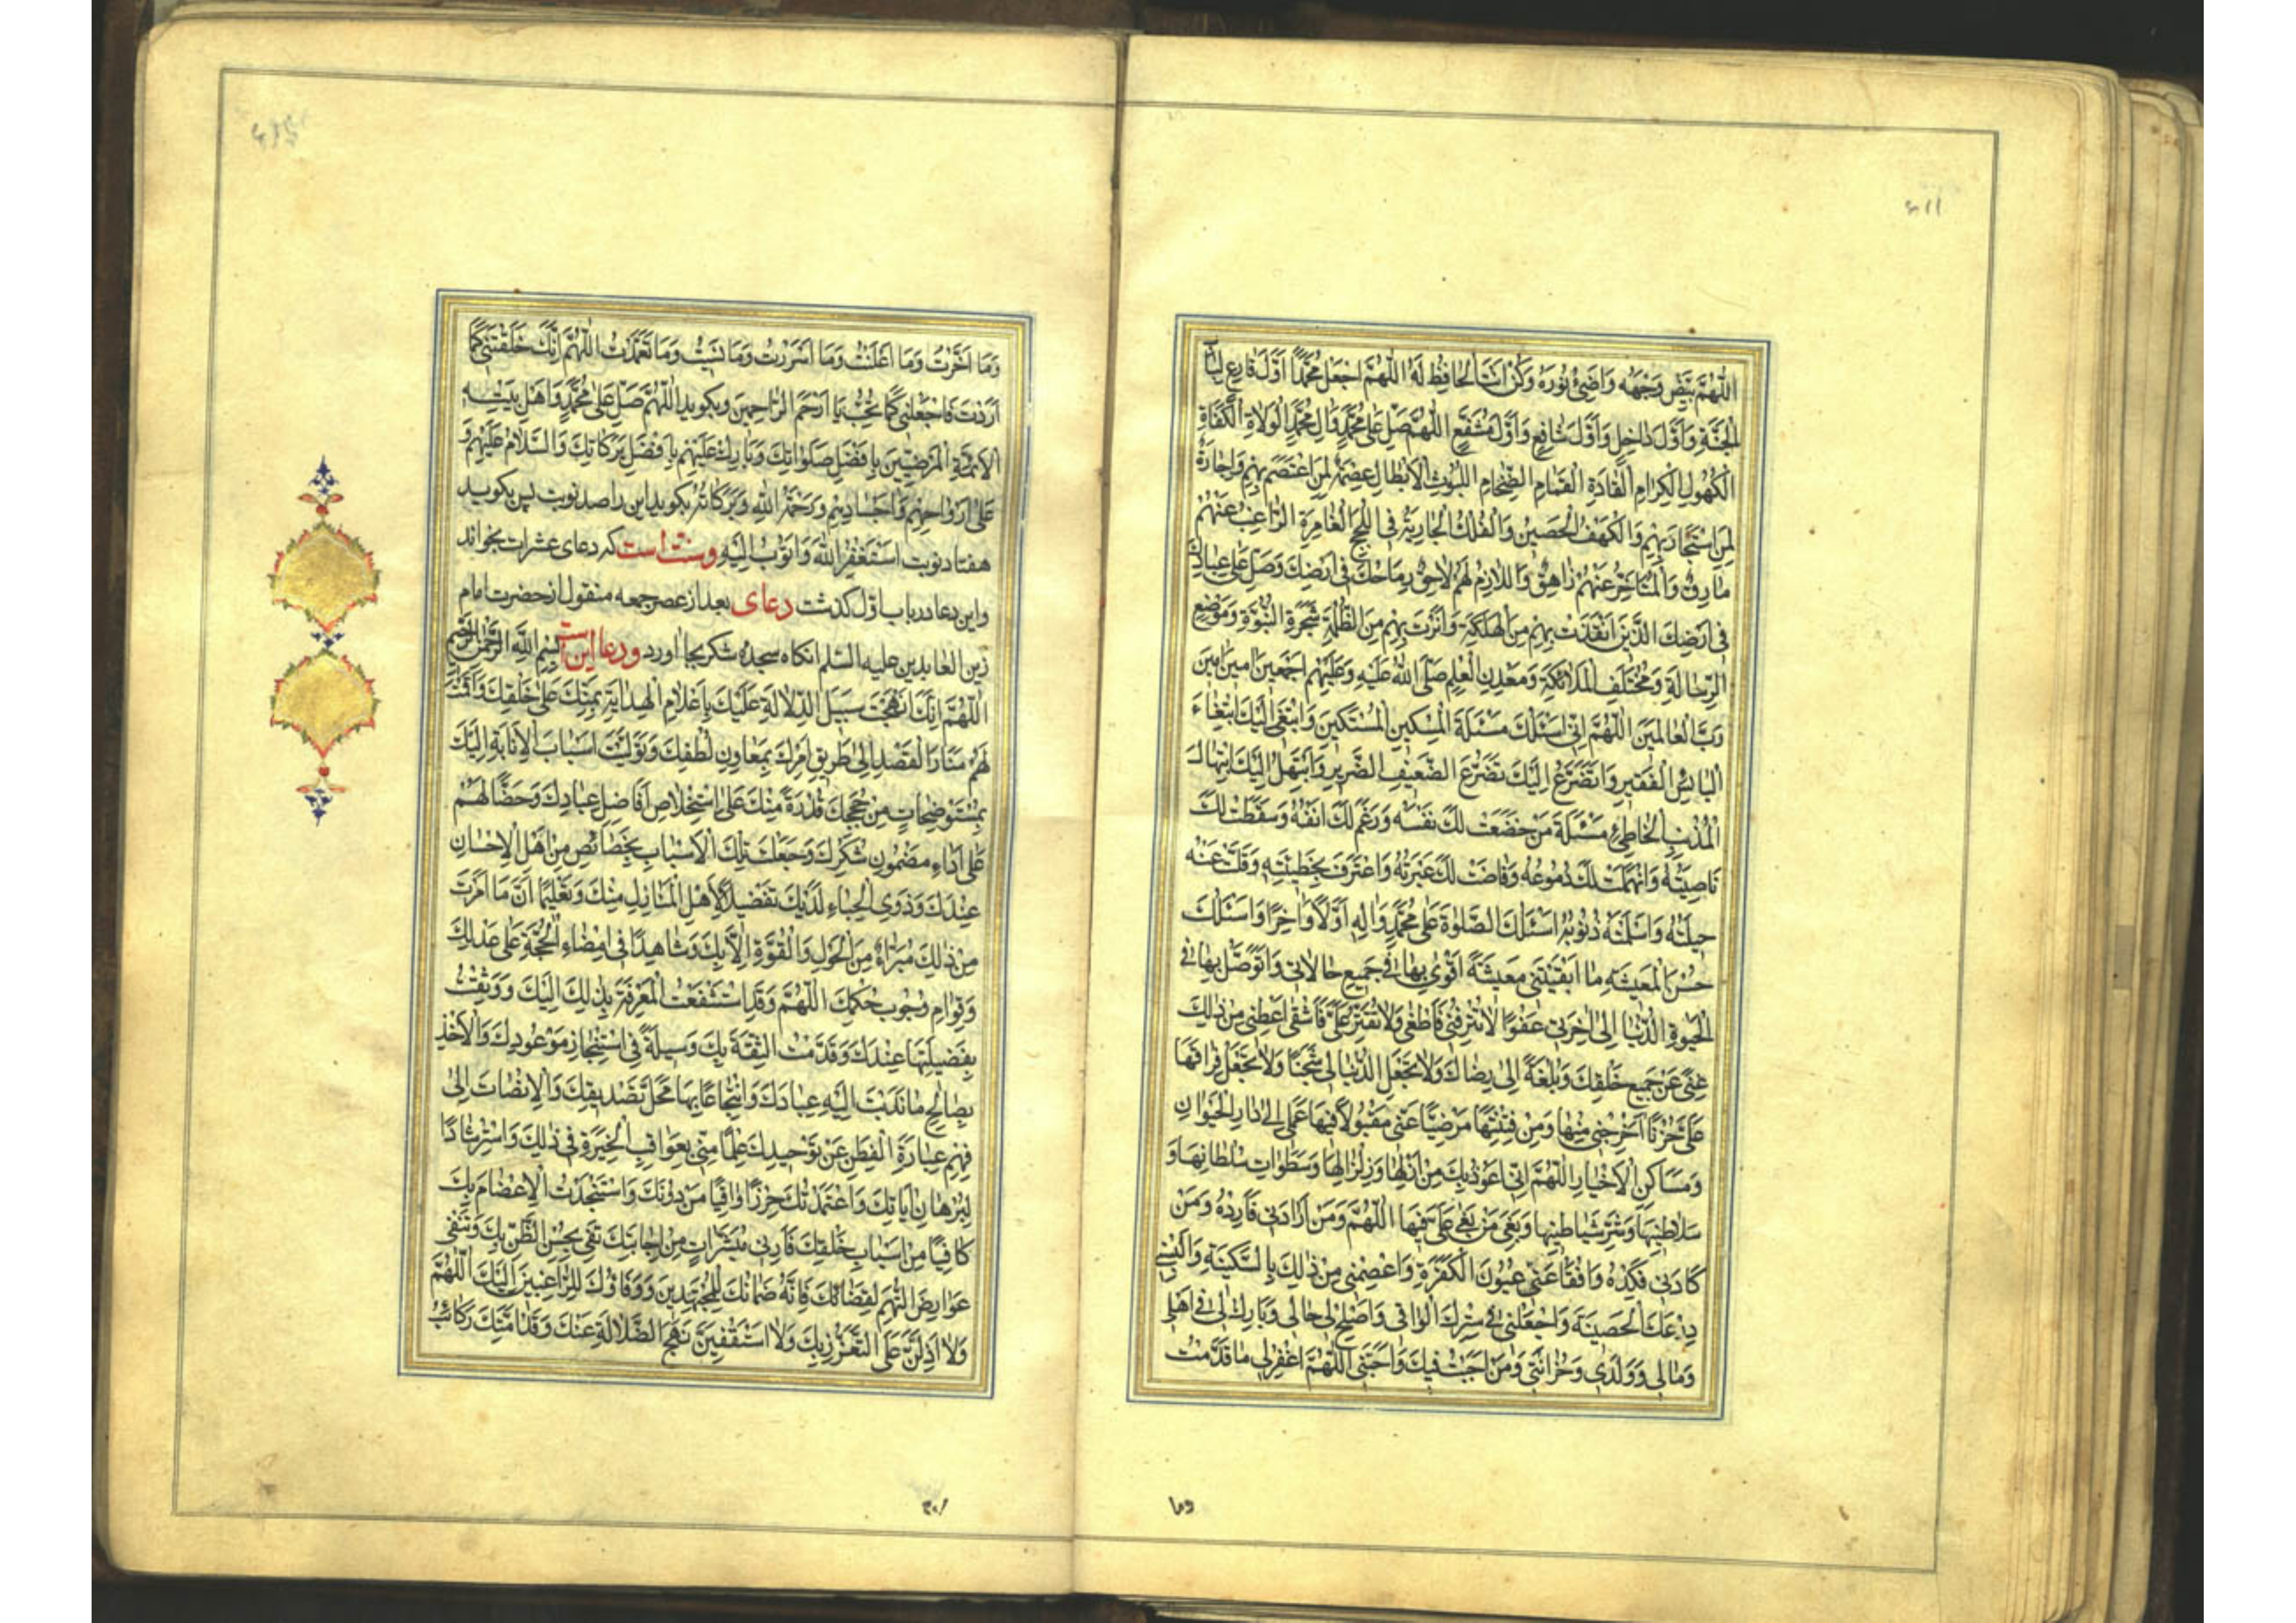 اللّٰهُمَّ بَيِّضْ وَجْهَهُ وَاَضِئْ نُورَهُ وَكُنْ اَنْتَ الْحَافِظَ لَهُ اللّٰهُمَّ اجْعَلْ مُحَمَّدًا اَوَّلَ قَارِعٍ لِبَابِ
الْجَنَّةِ وَاَوَّلَ دَاخِلٍ وَاَوَّلَ شَافِعٍ وَاَوَّلَ مُشَفَّعٍ اللّٰهُمَّ صَلِّ عَلٰى مُحَمَّدٍ وَاٰلِ مُحَمَّدٍ الْوُلَاةِ الْكُفَاةِ
الْكُهُولِ الْكِرَامِ الْقَادَةِ الْقَمَاقِمِ الضِّخَامِ اللُّيُوثِ الْاَبْطَالِ عِصْمَةٌ لِمَنِ اعْتَصَمَ بِهِمْ وَاِجَارَةٌ
لِمَنِ اسْتَجَارَ بِهِمْ وَالْكَهْفِ الْحَصِينِ وَالْفُلْكِ الْجَارِيَةِ فِى اللُّجَجِ الْغَامِرَةِ الرَّاغِبُ عَنْهُمْ
مَارِقٌ وَالْمُتَاَخِّرُ عَنْهُمْ زَاهِقٌ وَاللَّازِمُ لَهُمْ لَاحِقٌ رِمَاحِكَ فِى اَرْضِكَ وَصَلِّ عَلٰى عِبَادِكَ
فِى اَرْضِكَ الَّذِينَ اَنْقَذْتَ بِهِمْ مِنَ الْهَلَكَةِ وَاَنَرْتَ بِهِمْ مِنَ الظُّلْمَةِ شَجَرَةِ النُّبُوَّةِ وَمَوْضِعِ
الرِّسَالَةِ وَمُخْتَلَفِ الْمَلَائِكَةِ وَمَعْدِنِ الْعِلْمِ صَلَّى اللّٰهُ عَلَيْهِ وَعَلَيْهِمْ اَجْمَعِينَ اٰمِينَ اٰمِينَ
رَبَّ الْعَالَمِينَ اللّٰهُمَّ اِنِّى اَسْئَلُكَ مَسْئَلَةَ الْمِسْكِينِ الْمُسْتَكِينِ وَاَبْتَغِى اِلَيْكَ ابْتِغَاءَ
الْبَائِسِ الْفَقِيرِ وَاَتَضَرَّعُ اِلَيْكَ تَضَرُّعَ الضَّعِيفِ الضَّرِيرِ وَاَبْتَهِلُ اِلَيْكَ ابْتِهَالَ
الْمُذْنِبِ الْخَاطِئِ مَسْئَلَةَ مَنْ خَضَعَتْ لَكَ نَفْسُهُ وَرَغِمَ لَكَ اَنْفُهُ وَسَقَطَتْ لَكَ
نَاصِيَتُهُ وَانْهَمَلَتْ لَكَ دُمُوعُهُ وَفَاضَتْ لَكَ عَبْرَتُهُ وَاعْتَرَفَ بِخَطِيئَتِهِ وَقَلَّتْ عَنْهُ
حِيلَتُهُ وَاَسْلَمَتْهُ ذُنُوبُهُ اَسْئَلُكَ الصَّلٰوةَ عَلٰى مُحَمَّدٍ وَاٰلِهِ اَوَّلًا وَاٰخِرًا وَاَسْئَلُكَ
حُسْنَ الْمَعِيشَةِ مَا اَبْقَيْتَنِى مَعِيشَةً اَقْوٰى بِهَا فِى جَمِيعِ حَالَاتِى وَاَتَوَصَّلُ بِهَا فِى
الْحَيٰوةِ الدُّنْيَا اِلٰى اٰخِرَتِى عَفْوًا لَا تُتْرِفْنِى فَاَطْغٰى وَلَا تُقَتِّرْ عَلَىَّ فَاَشْقٰى اَعْطِنِى مِنْ ذٰلِكَ
غِنًى عَنْ جَمِيعِ خَلْقِكَ وَبُلْغَةً اِلٰى رِضَاكَ وَلَا تَجْعَلِ الدُّنْيَا لِى سِجْنًا وَلَا تَجْعَلْ فِرَاقَهَا
عَلَىَّ حُزْنًا اَخْرِجْنِى مِنْهَا وَمِنْ فِتْنَتِهَا مَرْضِيًّا عَنِّى مَقْبُولًا فِيهَا عَمَلِى اِلٰى دَارِ الْحَيَوَانِ
وَمَسَاكِنِ الْاَخْيَارِ اللّٰهُمَّ اِنِّى اَعُوذُ بِكَ مِنْ اَزْلِهَا وَزِلْزَالِهَا وَسَطَوَاتِ سُلْطَانِهَا وَ
سَلَاطِينِهَا وَشَرِّ شَيَاطِينِهَا وَبَغْىِ مَنْ بَغٰى عَلَىَّ فِيهَا اللّٰهُمَّ وَمَنْ اَرَادَنِى فَاَرِدْهُ وَمَنْ
كَادَنِى فَكِدْهُ وَافْقَاْ عَنِّى عُيُونَ الْكَفَرَةِ وَاعْصِمْنِى مِنْ ذٰلِكَ بِالسَّكِينَةِ وَاَلْبِسْنِى
دِرْعَكَ الْحَصِينَةَ وَاجْعَلْنِى فِى سِتْرِكَ الْوَاقِى وَاَصْلِحْ لِى حَالِى وَبَارِكْ لِى فِى اَهْلِى
وَمَالِى وَوَلَدِى وَحُزَانَتِى وَمَنْ اَحْبَبْتُ فِيكَ وَاَحَبَّنِى اللّٰهُمَّ اغْفِرْ لِى مَا قَدَّمْتُ
وَمَا اَخَّرْتُ وَمَا اَعْلَنْتُ وَمَا اَسْرَرْتُ وَمَا نَسِيتُ وَمَا تَعَمَّدْتُ اللّٰهُمَّ اِنَّكَ خَلَقْتَنِى كَمَا
اَرَدْتَ فَاجْعَلْنِى كَمَا تُحِبُّ يَا اَرْحَمَ الرَّاحِمِينَ وبكويد اللّٰهُمَّ صَلِّ عَلٰى مُحَمَّدٍ وَاَهْلِ بَيْتِهِ
الْاَئِمَّةِ الْمَرْضِيِّينَ بِاَفْضَلِ صَلَوَاتِكَ وَبَارِكْ عَلَيْهِمْ بِاَفْضَلِ بَرَكَاتِكَ وَالسَّلَامُ عَلَيْهِمْ وَ
عَلٰى اَرْوَاحِهِمْ وَاَجْسَادِهِمْ وَرَحْمَةُ اللّٰهِ وَبَرَكَاتُهُ بكويد اين را صد نوبت پس بكويد
هفتاد نوبت اَسْتَغْفِرُ اللّٰهَ وَاَتُوبُ اِلَيْهِ وسنت است كه دعاى عشرات بخواند
واين دعا در باب اول كذشت دعاى بعد از عصر جمعه منقول از حضرت امام
زين العابدين عليه السلم انكاه سجده شكر بجا اورد ودعا اين است بِسْمِ اللّٰهِ الرَّحْمٰنِ الرَّحِيمِ
اللّٰهُمَّ اِنَّكَ اَنْهَجْتَ سَبِيلَ الدَّلَالَةِ عَلَيْكَ بِاَعْلَامِ الْهِدَايَةِ بِمَنِّكَ عَلٰى خَلْقِكَ وَاَقَمْتَ
لَهُمْ مَنَارَ الْقَصْدِ اِلٰى طَرِيقِ اَمْرِكَ بِمَعَادِنِ لُطْفِكَ وَتَوَلَّيْتَ اَسْبَابَ الْاِنَابَةِ اِلَيْكَ
بِمُسْتَوْضِحَاتٍ مِنْ حُجَجِكَ قُدْرَةً مِنْكَ عَلَى اسْتِخْلَاصِ اَفَاضِلِ عِبَادِكَ وَحَضًّا لَهُمْ
عَلٰى اَدَاءِ مَضْمُونِ شُكْرِكَ وَجَعَلْتَ تِلْكَ الْاَسْبَابَ بِخَصَائِصَ مِنْ اَهْلِ الْاِحْسَانِ
عِنْدَكَ وَذَوِى الْحِبَاءِ لَدَيْكَ تَفْضِيلًا لِاَهْلِ الْمَنَازِلِ مِنْكَ وَتَعْلِيمًا اَنَّ مَا اَمَرْتَ
مِنْ ذٰلِكَ مُبَرَّاءٌ مِنَ الْحَوْلِ وَالْقُوَّةِ اِلَّا بِكَ وَشَاهِدًا فِى اِمْضَاءِ الْحُجَّةِ عَلٰى عَدْلِكَ
وَقِوَامِ وُجُوبِ حُكْمِكَ اللّٰهُمَّ وَقَدِ اسْتَشْفَعَتِ الْمَعْرِفَةُ بِذٰلِكَ اِلَيْكَ وَوَثِقْتُ
بِفَضِيلَتِهَا عِنْدَكَ وَقَدَّمْتُ الثِّقَةَ بِكَ وَسِيلَةً فِى اسْتِنْجَازِ مَوْعُودِكَ وَالْاَخْذِ
بِصَالِحِ مَا نَدَبْتَ اِلَيْهِ عِبَادَكَ وَانْتِجَاعًا بِهَا مَحَلَّ تَصْدِيقِكَ وَالْاِنْصَاتَ اِلٰى
فَهْمِ عِبَارَةِ الْفِطَنِ عَنْ تَوْحِيدِكَ عِلْمًا مِنِّى بِعَوَاقِبِ الْخِيَرَةِ فِى ذٰلِكَ وَاسْتِرْشَادًا
لِبُرْهَانِ اٰيَاتِكَ وَاعْتَمَدْتُكَ حِرْزًا وَاقِيًا مَنْ دُونَكَ وَاسْتَنْجَدْتُ الْاِعْتِصَامَ بِكَ
كَافِيًا مِنْ اَسْبَابِ خَلْقِكَ فَاَرِنِى مُبَشِّرَاتٍ مِنْ اِجَابَتِكَ تَفِى بِحُسْنِ الظَّنِّ بِكَ وَتَنْفِى
عَوَارِضَ التُّهَمِ لِقَضَائِكَ فَاِنَّهُ ضَمَانُكَ لِلْمُجْتَهِدِينَ وَوَفَاؤُكَ لِلرَّاغِبِينَ اِلَيْكَ اللّٰهُمَّ
وَلَا اَذِلَّنَّ عَلَى التَّعَزُّزِ بِكَ وَلَا اَسْتَقْفِيَنَّ نَهْجَ الضَّلَالَةِ عَنْكَ وَقَدْ اَمَّتْكَ رَكَائِبُ